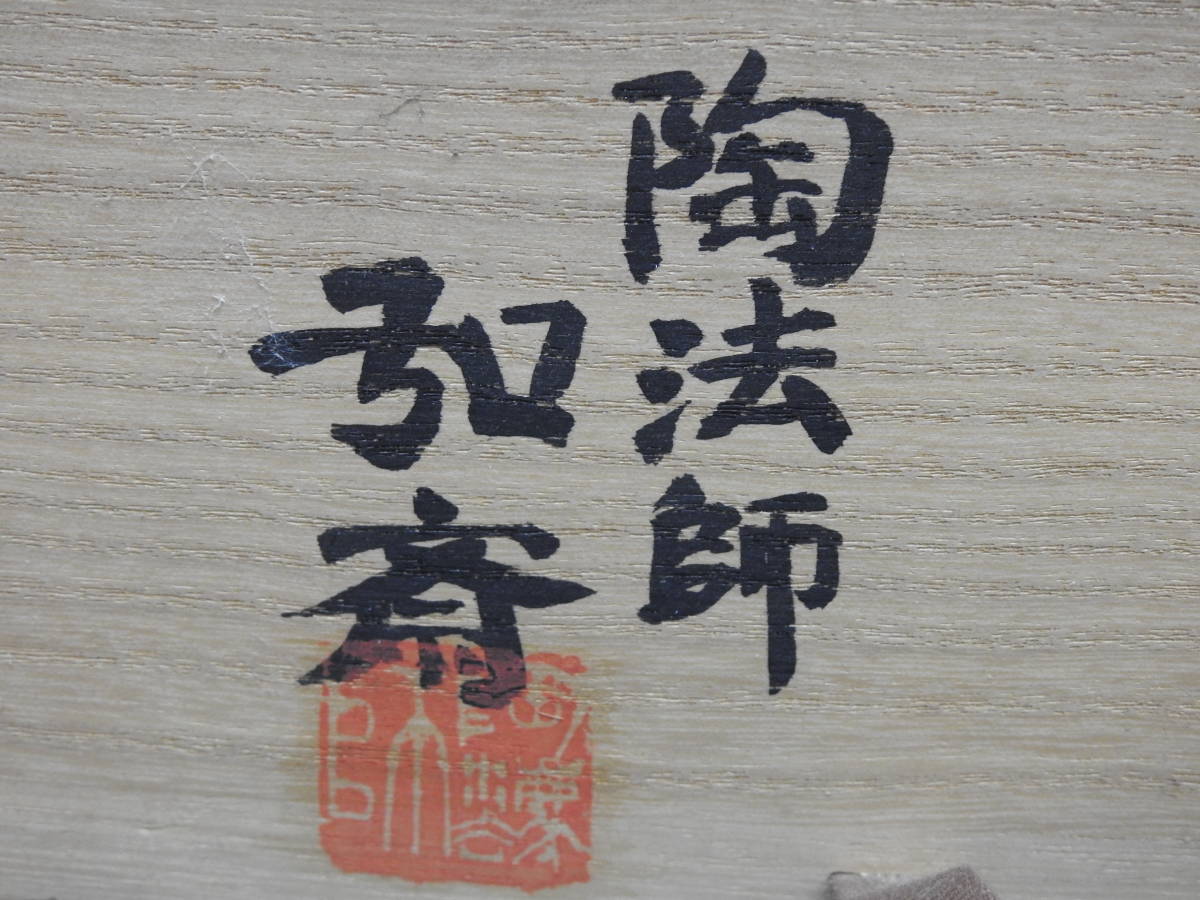 陶法師
弘斎